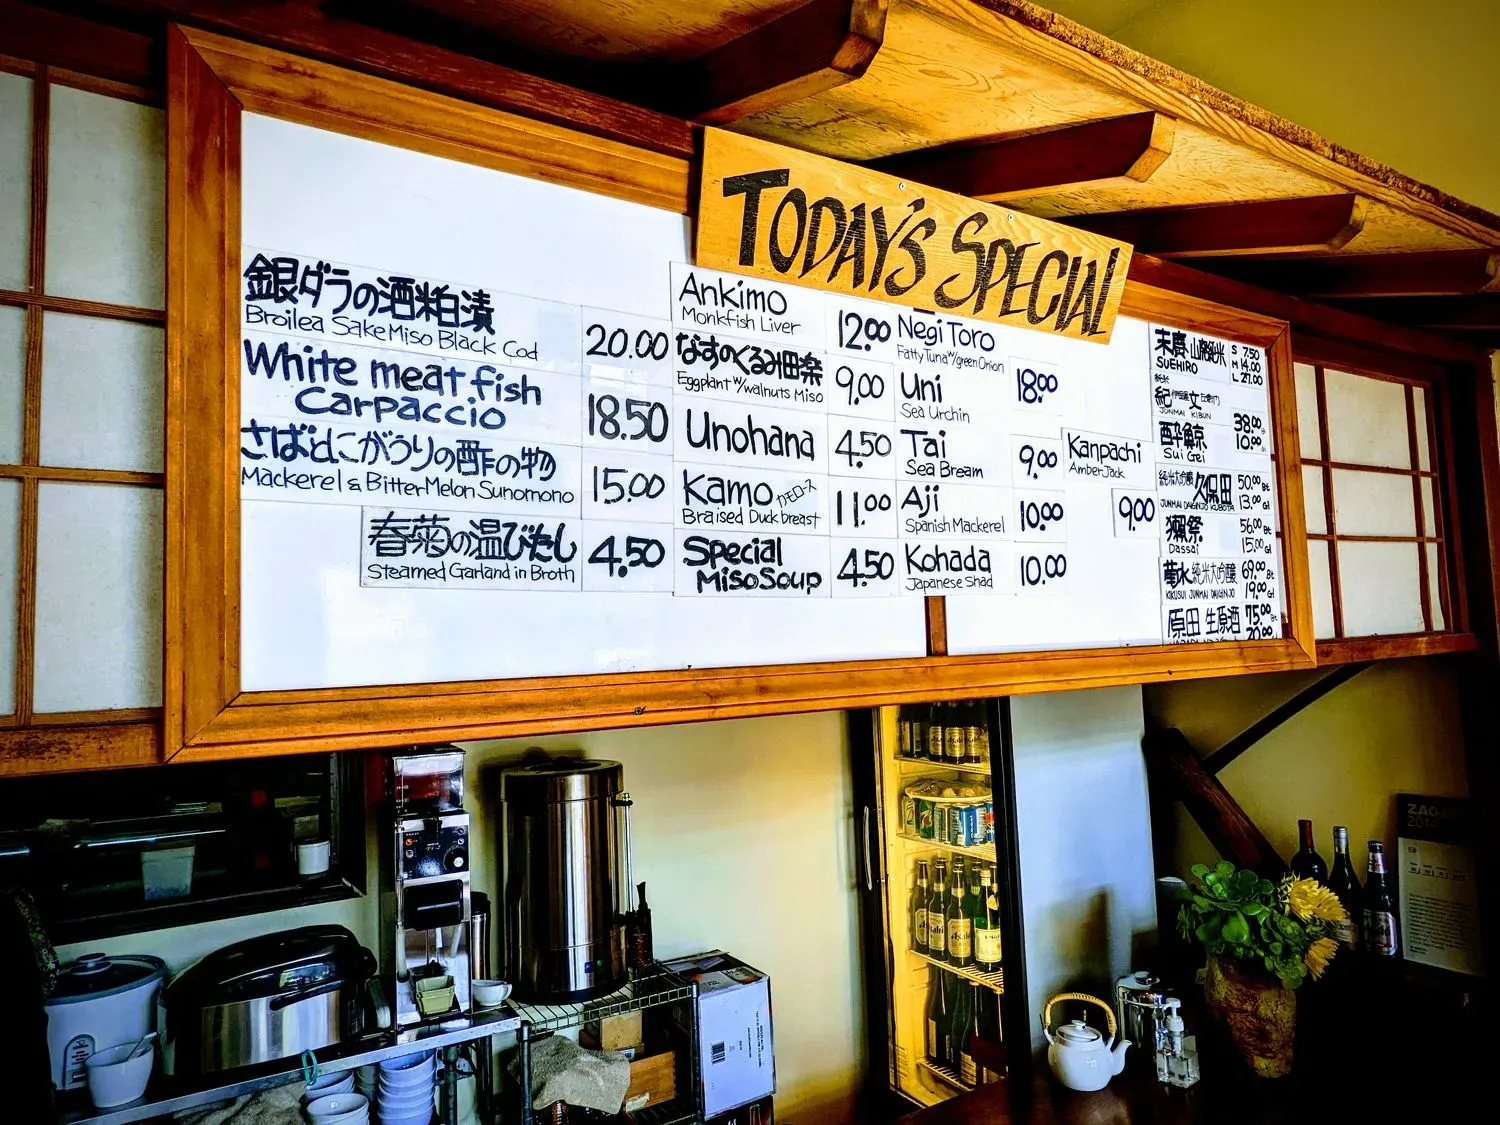 TODAY'S SPECIAL
銀ダラの酒粕漬
Broilea Sake Miso Black Cod
20.00
White meat fish
Carpaccio
18.50
さばとにがうりの酢の物
Mackerel & Bitter Melon Sunomono
15.00
春菊の温びたし
Steamed Garland in Broth
4.50
Ankimo
Monkfish Liver
12.00
なすのくるみ田楽
Eggplant w/walnuts Miso
9.00
Unohana
4.50
Kamo カモロース
Braised Duck breast
11.00
Special
Miso Soup
4.50
Negi Toro
Fatty Tuna w/green Onion
18.00
Uni
Sea Urchin
Tai
Sea Bream
9.00
Aji
Spanish Mackerel
10.00
Kohada
Japanese Shad
10.00
Kanpachi
Amber Jack
9.00
末廣 山廃純米
SUEHIRO
S 7.50
M 14.00
L 27.00
純米
紀 文
JUNMAI KIBUN
38.00
酔鯨
Sui Gei
10.00
純米大吟醸 久保田
JUNMAI DAIGINJO KUBOTA
50.00 Bt
13.00
獺祭
Dassai
56.00 Bt
15.00 Gl
菊水 純米大吟醸
KIKUSUI JUNMAI DAIGINJO
69.00 Bt
19.00 Gl
原田 生原酒
75.00 Bt
20.00
Asahi